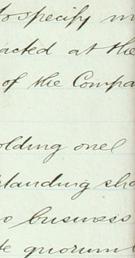 to specify in
acted at the
of the Compa
olding one
tanding sha
o business
te quorum